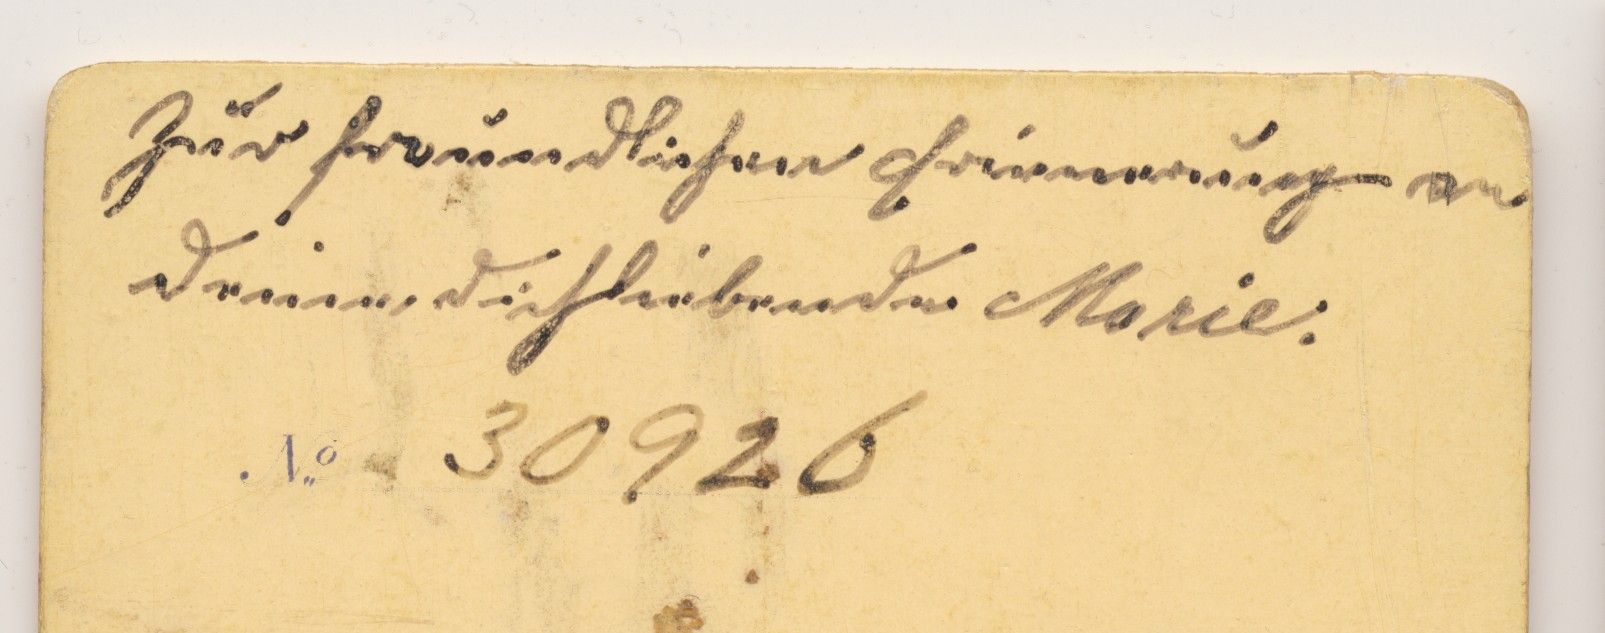 Zur freundlichen Erinnerung an
Deine, dich liebende Marie.
No. 30926